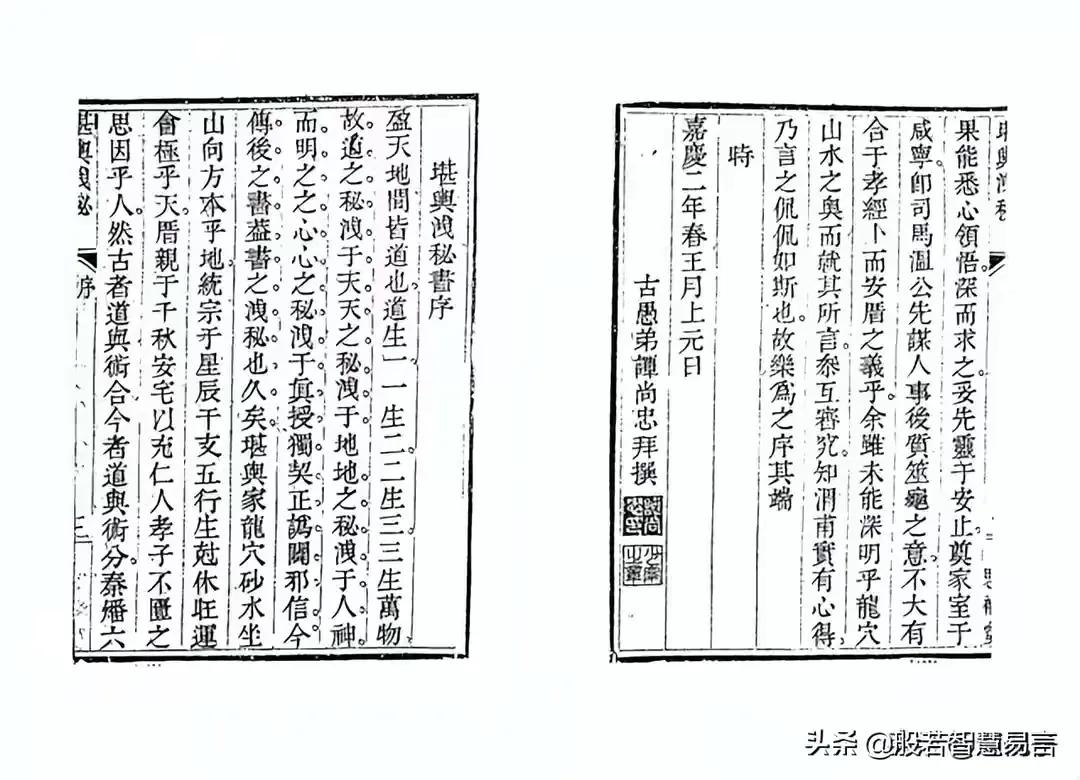 堪輿洩秘
果能悉心領悟深而求之妥先靈于安止奠家室于
咸寧卽司馬溫公先謀人事後質筮龜之意不大有
合于孝經卜而安厝之義乎余雖未能深明乎龍穴
山水之奧而就其所言叅互審究知渭甫實有心得
乃言之侃侃如斯也故樂爲之序其端
時
嘉慶二年春王月上元日
古愚弟譚尚忠拜撰
堪輿洩秘書序
盈天地間皆道也道生一一生二二生三三生萬物
故道之秘洩于天天之秘洩于地地之秘洩于人神
而明之之心心之秘洩于眞授獨契正譌闢邪信今
傳後之書葢書之洩秘也久矣堪輿家龍穴砂水坐
山向方本乎地統宗于星辰干支五行生尅休旺運
會極乎天厝親于千秋安宅以充仁人孝子不匱之
思因乎人然古者道與術合今者道與術分秦燔六
堪輿洩秘 序 三
头条 @般若智慧易言